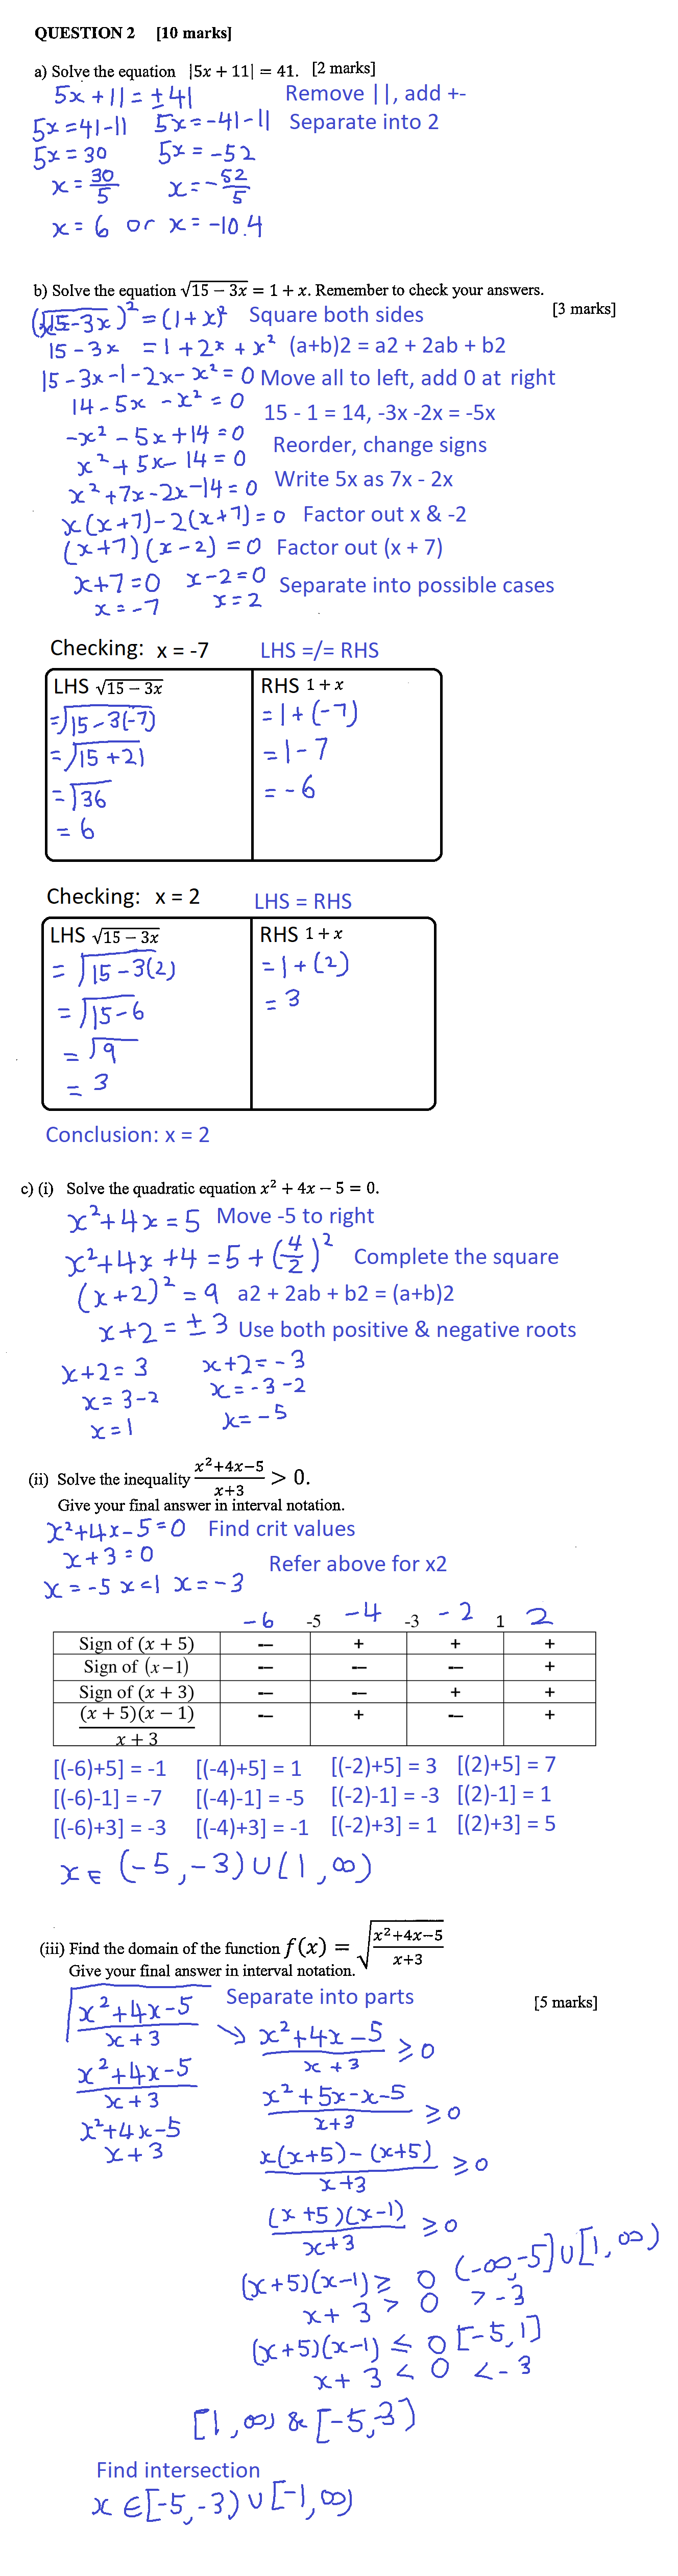 QUESTION 2 [10 marks]
a) Solve the equation |5x + 11| = 41. [2 marks]
5x + 11 = ± 41 Remove ||, add +-
5x = 41 - 11 5x = -41 - 11 Separate into 2
5x = 30 5x = -52
x = 30/5 x = -52/5
x = 6 or x = -10.4
b) Solve the equation √(15 − 3x) = 1 + x. Remember to check your answers.
[3 marks]
(√15-3x)² = (1+x)² Square both sides
15 - 3x = 1 + 2x + x² (a+b)2 = a2 + 2ab + b2
15 - 3x - 1 - 2x - x² = 0 Move all to left, add 0 at right
14 - 5x - x² = 0 15 - 1 = 14, -3x -2x = -5x
-x² - 5x + 14 = 0
x² + 5x - 14 = 0 Reorder, change signs
x² + 7x - 2x - 14 = 0 Write 5x as 7x - 2x
x(x+7) - 2(x+7) = 0 Factor out x & -2
(x+7)(x-2) = 0 Factor out (x + 7)
x+7 = 0 x-2 = 0 Separate into possible cases
x = -7 x = 2
Checking: x = -7 LHS =/= RHS
LHS √(15 − 3x) RHS 1 + x
= √15-3(-7) = 1 + (-7)
= √15+21 = 1 - 7
= √36 = -6
= 6
Checking: x = 2 LHS = RHS
LHS √(15 − 3x) RHS 1 + x
= √15-3(2) = 1 + (2)
= √15-6 = 3
= √9
= 3
Conclusion: x = 2
c) (i) Solve the quadratic equation x² + 4x − 5 = 0.
x² + 4x = 5 Move -5 to right
x² + 4x + 4 = 5 + (4/2)² Complete the square
(x+2)² = 9 a2 + 2ab + b2 = (a+b)2
x+2 = ± 3 Use both positive & negative roots
x+2 = 3 x+2 = -3
x = 3-2 x = -3-2
x = 1 x = -5
(ii) Solve the inequality (x²+4x−5)/(x+3) > 0.
Give your final answer in interval notation.
x² + 4x - 5 = 0 Find crit values
x + 3 = 0 Refer above for x2
x = -5 x = 1 x = -3
-6 -5 -4 -3 -2 1 2
Sign of (x + 5) − + + +
Sign of (x − 1) − − − +
Sign of (x + 3) − − + +
(x + 5)(x − 1)/(x + 3) − + − +
[(-6)+5] = -1 [(-4)+5] = 1 [(-2)+5] = 3 [(2)+5] = 7
[(-6)-1] = -7 [(-4)-1] = -5 [(-2)-1] = -3 [(2)-1] = 1
[(-6)+3] = -3 [(-4)+3] = -1 [(-2)+3] = 1 [(2)+3] = 5
x ∈ (-5, -3) ∪ (1, ∞)
(iii) Find the domain of the function f(x) = √((x²+4x−5)/(x+3))
Give your final answer in interval notation.
[5 marks]
√((x²+4x-5)/(x+3)) Separate into parts
→ (x²+4x-5)/(x+3) ≥ 0
(x²+4x-5)/(x+3) (x²+5x-x-5)/(x+3) ≥ 0
x²+4x-5
x+3 (x(x+5)-(x+5))/(x+3) ≥ 0
((x+5)(x-1))/(x+3) ≥ 0
(x+5)(x-1) ≥ 0 (-∞,-5]∪[1,∞)
x + 3 > 0 > -3
(x+5)(x-1) ≤ 0 [-5,1]
x + 3 < 0 < -3
[1,∞) & [-5,3)
Find intersection
x ∈ [-5,-3) ∪ [-1,∞)